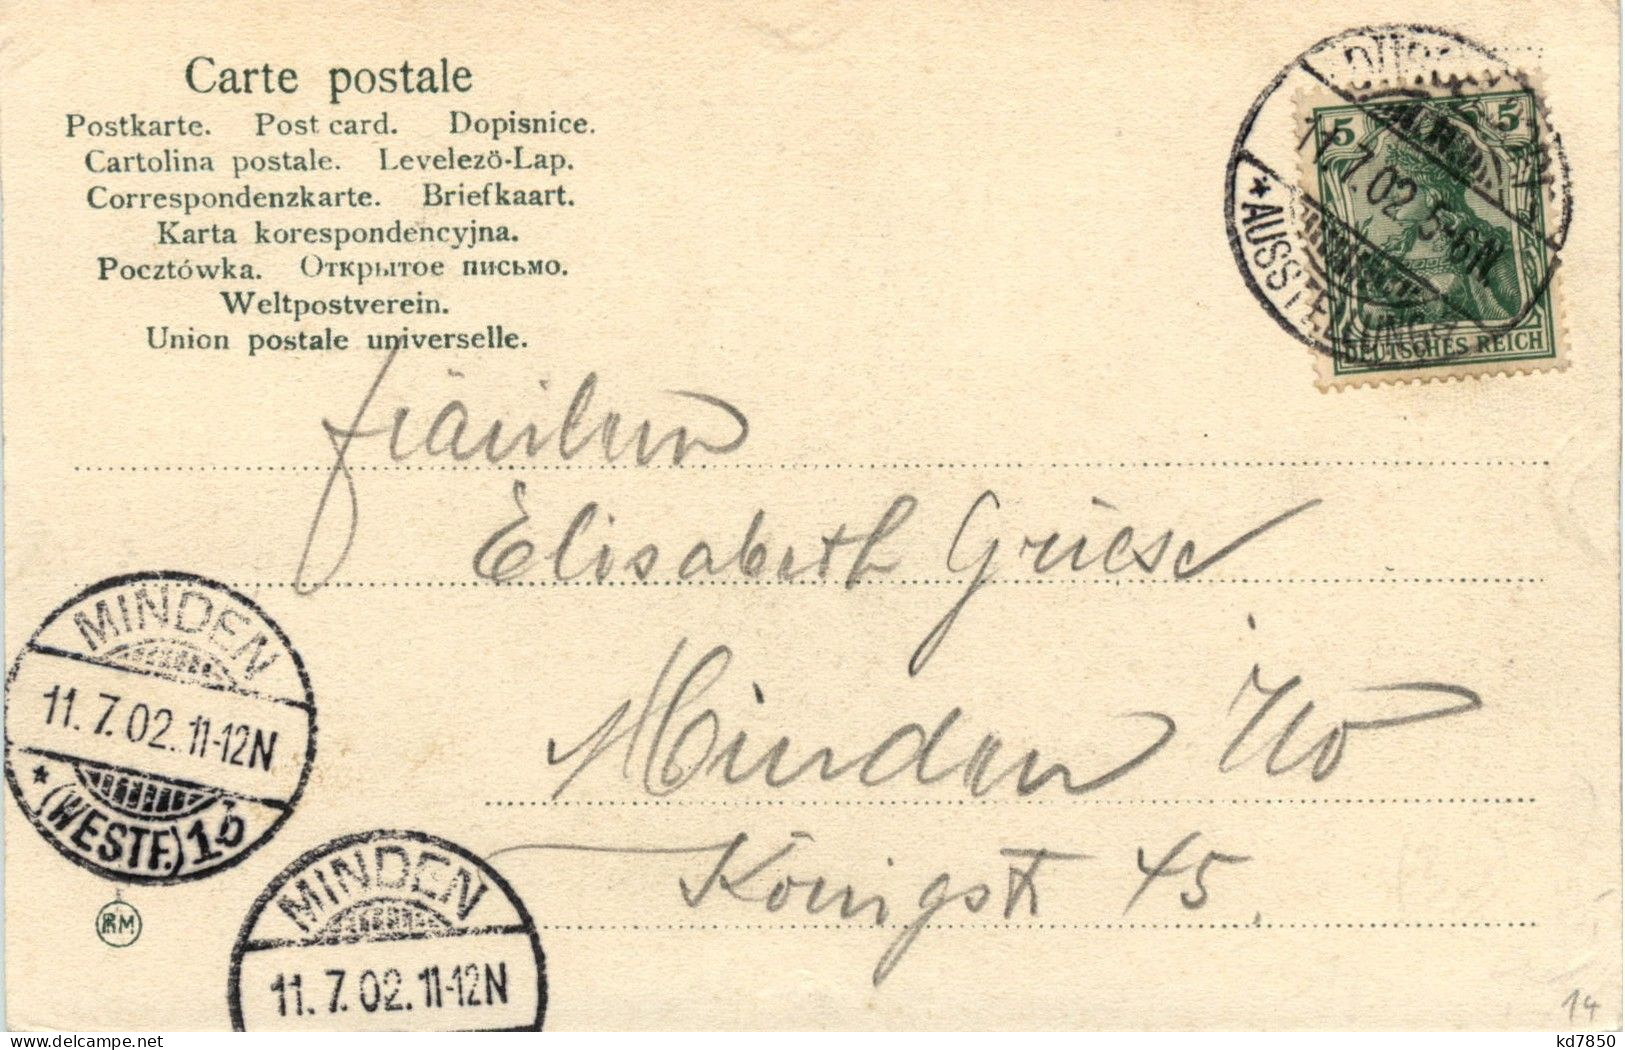 Carte postale
Postkarte. Post card. Dopisnice.
Cartolina postale. Levelezö-Lap.
Correspondenzkarte. Briefkaart.
Karta korespondencyjna.
Pocztówka. Открытое письмо.
Weltpostverein.
Union postale universelle.
5 5
DEUTSCHES REICH
11.7.02 5-6N
* AUSSTELLUNG
Fräulein
Elisabeth Griese
Minden i/W
Königst 45.
MINDEN
11.7.02.11-12N
* (WESTF.) 1b
MINDEN
11.7.02.11-12N
14
kd7850